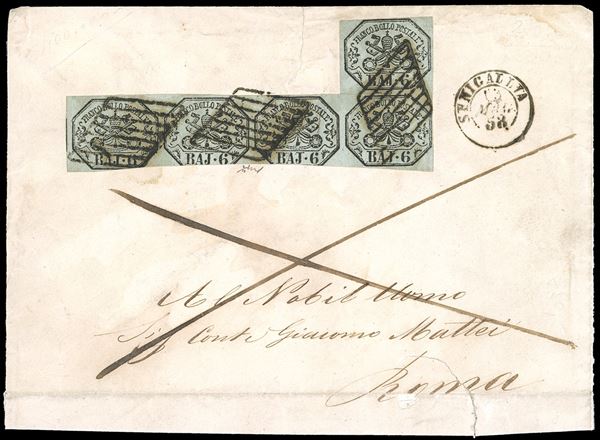 FRANCO BOLLO POSTALE
BAJ·6
FRANCO BOLLO POSTALE
BAJ·6
FRANCO BOLLO POSTALE
BAJ·6
FRANCO BOLLO POSTALE
BAJ·6
BAJ·6
SENIGALLIA
58
Al Nobil Uomo
Sig Conte Giacomo Mattei
Roma